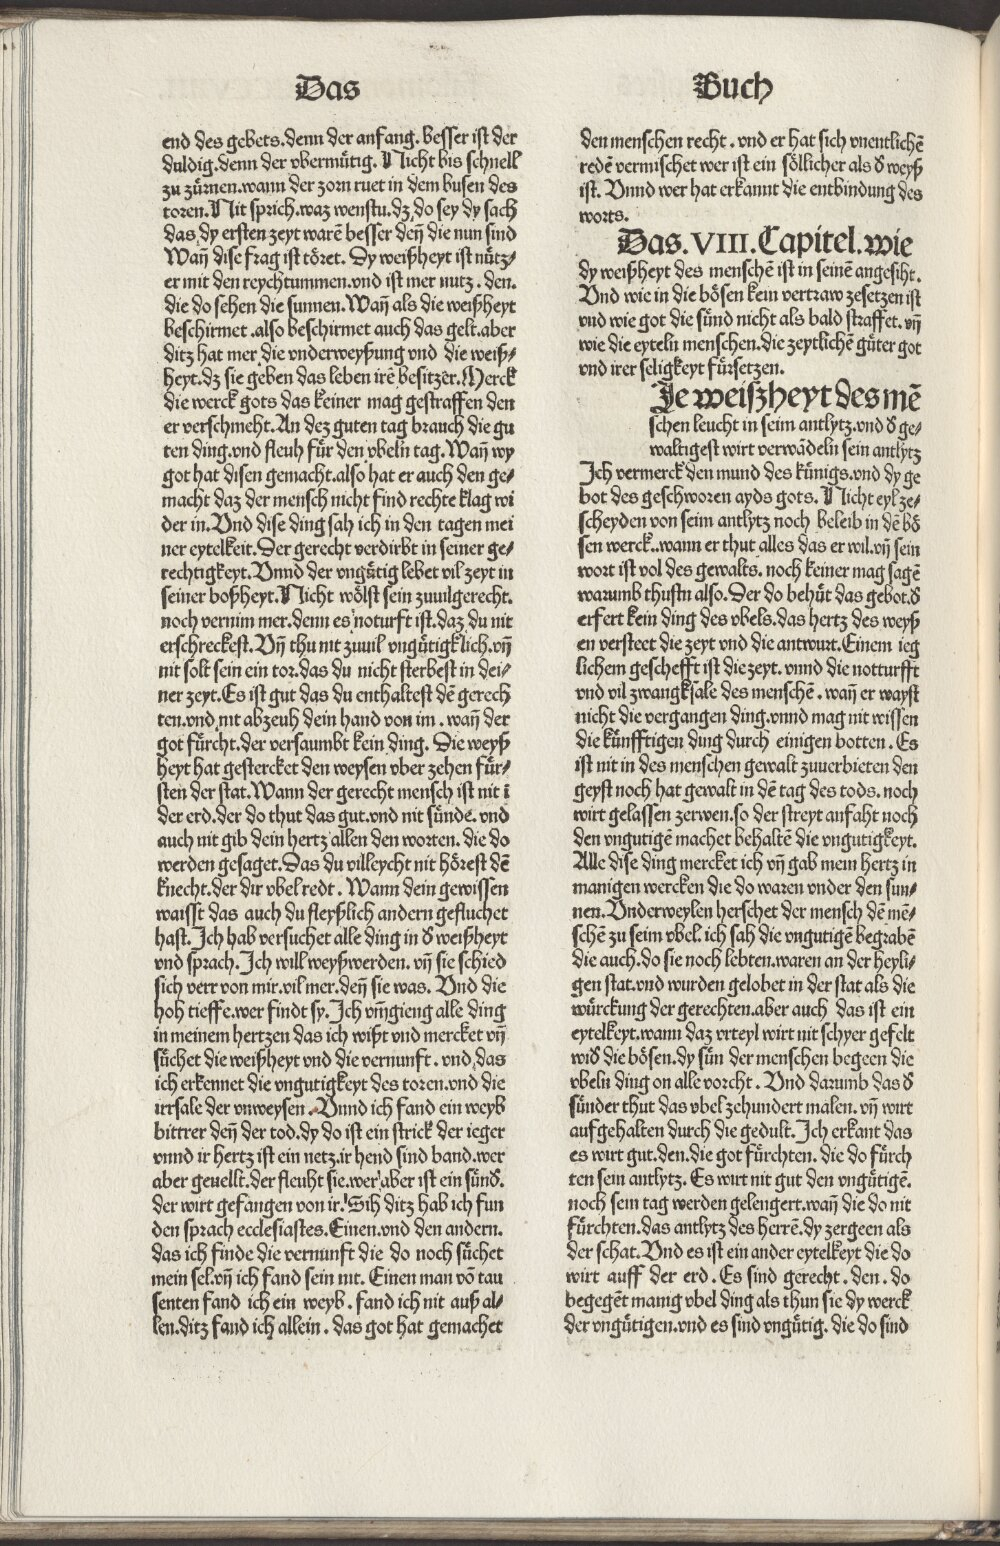 Das
end des gebets.denn der anfang. besser ist der
duldig.denn der vbermuͤtig. Nicht bis schnell
zu zuͤrnen.wann der zorn ruet in dem busen des
toren.Nit sprich.waz wenstu.dz do sey dy sach
das dy ersten zeyt warē besser deñ die nun sind
Wañ dise frag ist toͤret. Dy weißheyt ist nuͤtz⸗
er mit den reychtummen.vnd ist mer nutz. den.
die do sehen die sunnen.Wañ als die weißheyt
beschirmet .also beschirmet auch das gelt.aber
ditz hat mer die vnderweyßung vnd die weiß⸗
heyt.dz sie geben das leben irē besitzer.Merck
die werck gots das keiner mag gestraffen den
er verschmeht.An dez guten tag brauch die gu
ten ding.vnd fleuh fuͤr den vbeln tag.Wañ wy
got hat disen gemacht.also hat er auch den ge⸗
macht daz der mensch nicht find rechte klag wi
der in.Vnd dise ding sah ich in den tagen mei
ner eytelkeit.Der gerecht verdirbt in seiner ge⸗
rechtigkeyt.Vnnd der vnguͤtig lebet vil zeyt in
seiner boßheyt.Nicht woͤlst sein zuuilgerecht.
noch vernim mer.denn es noturft ist.daz du nit
erschreckest.Vñ thu nit zuuil vnguͤtigklich.vñ
nit solt sein ein tor.das du nicht sterbest in dei⸗
ner zeyt.Es ist gut das du enthaltest dē gerech
ten.vnd nit abzeuh dein hand von im . wañ der
got fuͤrcht.der versaumbt kein ding. Die weyß
heyt hat gestercket den weysen vber zehen fuͤr⸗
sten der stat.Wann der gerecht mensch ist nit ī
der erd.der do thut das gut.vnd nit suͤnde. vnd
auch nit gib dein hertz allen den worten. die do
werden gesaget.Das du villeycht nit hoͤrest dē
knecht.der dir vbel redt . Wann dein gewissen
waisst das auch du fleyßlich andern gefluchet
hast. Ich hab versuchet alle ding in d̕ weißheyt
vnd sprach. Ich will weyß werden. vñ sie schied
sich verr von mir.vil mer.deñ sie was. Vnd die
hoh tieffe.wer findt sy. Ich vm̄gieng alle ding
in meinem hertzen das ich wißt vnd mercket vñ
suͤchet die weißheyt vnd die vernunft . vnd das
ich erkennet die vngutigkeyt des toren.vnd die
irrsale der vnweysen . Vnnd ich fand ein weyb
bittrer deñ der tod.dy do ist ein strick der ieger
vnnd ir hertz ist ein netz.ir hend sind band.wer
aber geuellt.der fleuht sie.wer aber ist ein suͤnd̕.
der wirt gefangen von ir. Sih ditz hab ich fun
den sprach ecclesiastes.Einen.vnd den andern.
das ich finde die vernunft die do noch suͤchet
mein sel.vñ ich fand sein nit. Einen man vō tau
senten fand ich ein weyb . fand ich nit auß al⸗
len.ditz fand ich allein . das got hat gemachet
Buch
den menschen recht . vnd er hat sich vnentlichē
redē vermischet wer ist ein soͤllicher als d̕ weyß
ist. Vnnd wer hat erkannt die entbindung des
worts.
Das.VIII.Capitel.wie
dy weißheyt des menschē ist in seinē angesiht.
Vnd wie in die boͤsen kein vertraw zesetzen ist
vnd wie got die suͤnd nicht als bald straffet. vñ
wie die eyteln menschen.die zeytlichē guͤter got
vnd irer seligkeyt fuͤrsetzen.
Je weißheyt des mē
schen leucht in seim antlytz.vnd d̕ ge⸗
waltigest wirt verwādeln sein antlytz
Ich vermerck den mund des kuͤnigs.vnd dy ge
bot des geschworen ayds gots. Nicht eyl ze⸗
scheyden von seim antlytz noch beleib in dē boͤ
sen werck..wann er thut alles das er wil.vñ sein
wort ist vol des gewalts. noch keiner mag sagē
warumb thustu also.Der do behuͤt das gebot.d̕
erfert kein ding des vbels.das hertz des weyß
en versteet die zeyt vnd die antwurt.Einem ieg
lichem geschefft ist die zeyt. vnnd die notturfft
vnd vil zwangksale des menschē . wañ er wayst
nicht die vergangen ding.vnnd mag nit wissen
die kuͤnfftigen ding durch einigen botten . Es
ist nit in des menschen gewalt zuuerbieten den
geyst noch hat gewalt in dē tag des tods. noch
wirt gelassen zerwen.so der streyt anfaht noch
den vngutigē machet behaltē die vngutigkeyt.
Alle dise ding mercket ich vñ gab mein hertz in
manigen wercken die do waren vnder den sun⸗
nen.Vnderweylen herschet der mensch dē mē⸗
schē zu seim vbel. ich sah die vngutigē begrabē
die auch.do sie noch lebten.waren an der heyli⸗
gen stat.vnd wurden gelobet in der stat als die
wuͤrckung der gerechten.aber auch das ist ein
eytelkeyt.wann daz vrteyl wirt nit schyer gefelt
wid̕ die boͤsen.dy suͤn der menschen begeen die
vbeln ding on alle vorcht . Vnd darumb das d̕
suͤnder thut das vbel zehundert malen. vñ wirt
aufgehalten durch die gedult. Ich erkant das
es wirt gut.den.die got fuͤrchten. die do fuͤrch
ten sein antlytz. Es wirt nit gut den vnguͤtigē.
noch sein tag werden gelengert.wañ die do nit
fuͤrchten.das antlytz des herrē.dy zergeen als
der schat.Vnd es ist ein ander eytelkeyt die do
wirt auff der erd . Es sind gerecht . den . do
begegēt manig vbel ding als thun sie dy werck
der vnguͤtigen.vnd es sind vnguͤtig. die do sind